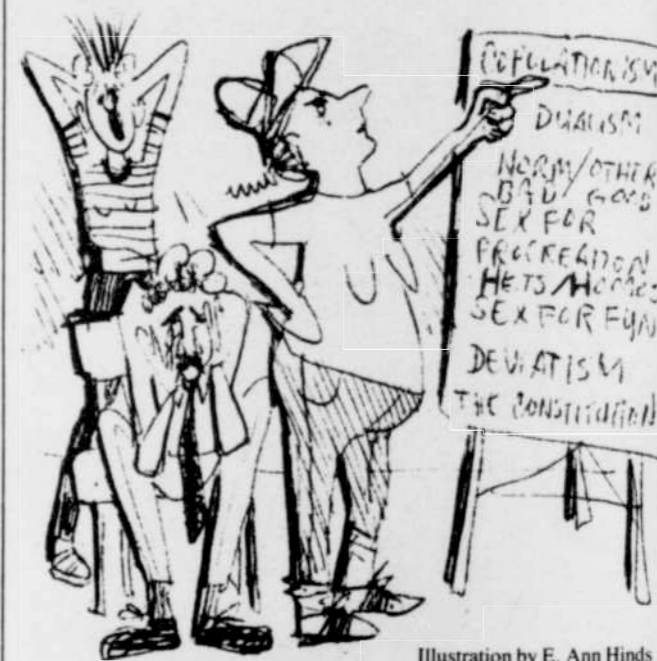 COPULATIONISM
DUALISM
NORM/OTHER
BAD GOOD
SEX FOR
PROCREATION
HETS/HOMOS
SEX FOR FUN
DEVIATISM
THE CONSTITUTION
Illustration by E. Ann Hinds